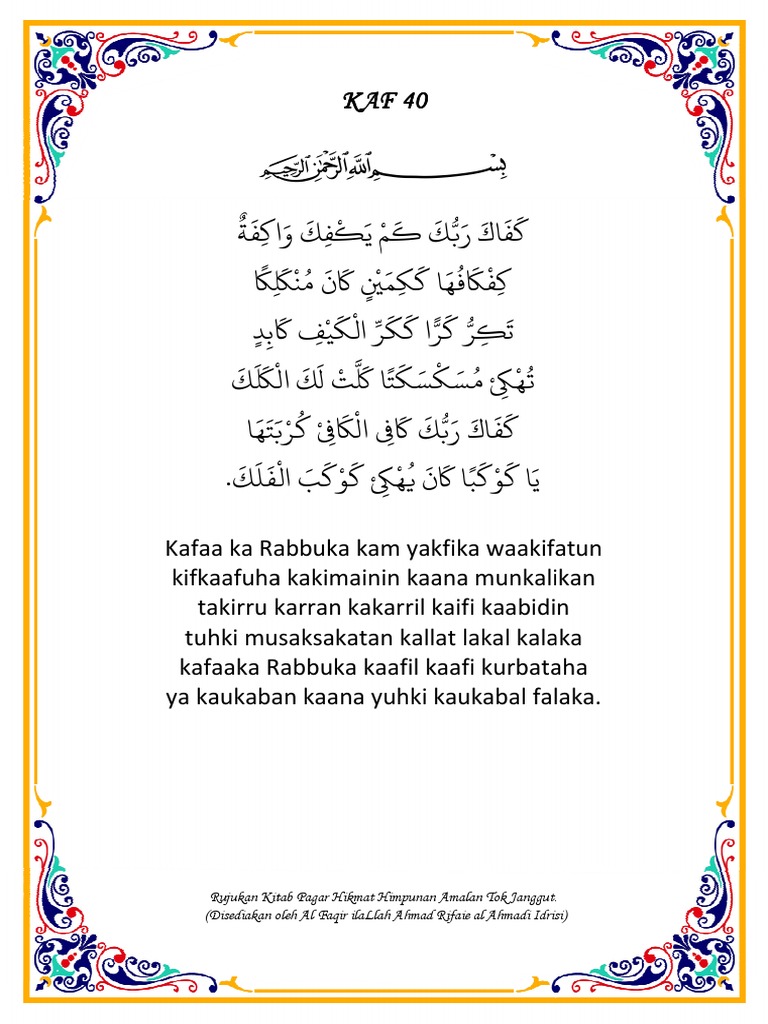 KAF 40
بِسْمِ اللهِ الرَّحْمٰنِ الرَّحِيْمِ
كَفَاكَ رَبُّكَ كَمْ يَكْفِكَ وَاكِفَةٌ
كِفْكَافُهَا كَكِمَيْنٍ كَانَ مُنْكَلِكًا
تَكِرُّ كَرًّا كَكَرِّ الْكَيْفِ كَابِدٍ
تُهْكِيْ مُسَكْسَكَتًا كَلَّتْ لَكَ الْكَلَكَ
كَفَاكَ رَبُّكَ كَافِى الْكَافِيْ كُرْبَتَهَا
يَا كَوْكَبًا كَانَ يُهْكِيْ كَوْكَبَ الْفَلَكَ.
Kafaa ka Rabbuka kam yakfika waakifatun
kifkaafuha kakimainin kaana munkalikan
takirru karran kakarril kaifi kaabidin
tuhki musaksakatan kallat lakal kalaka
kafaaka Rabbuka kaafil kaafi kurbataha
ya kaukaban kaana yuhki kaukabal falaka.
Rujukan Kitab Pagar Hikmat Himpunan Amalan Tok Janggut.
(Disediakan oleh Al Faqir ilaLlah Ahmad Rifaie al Ahmadi Idrisi)